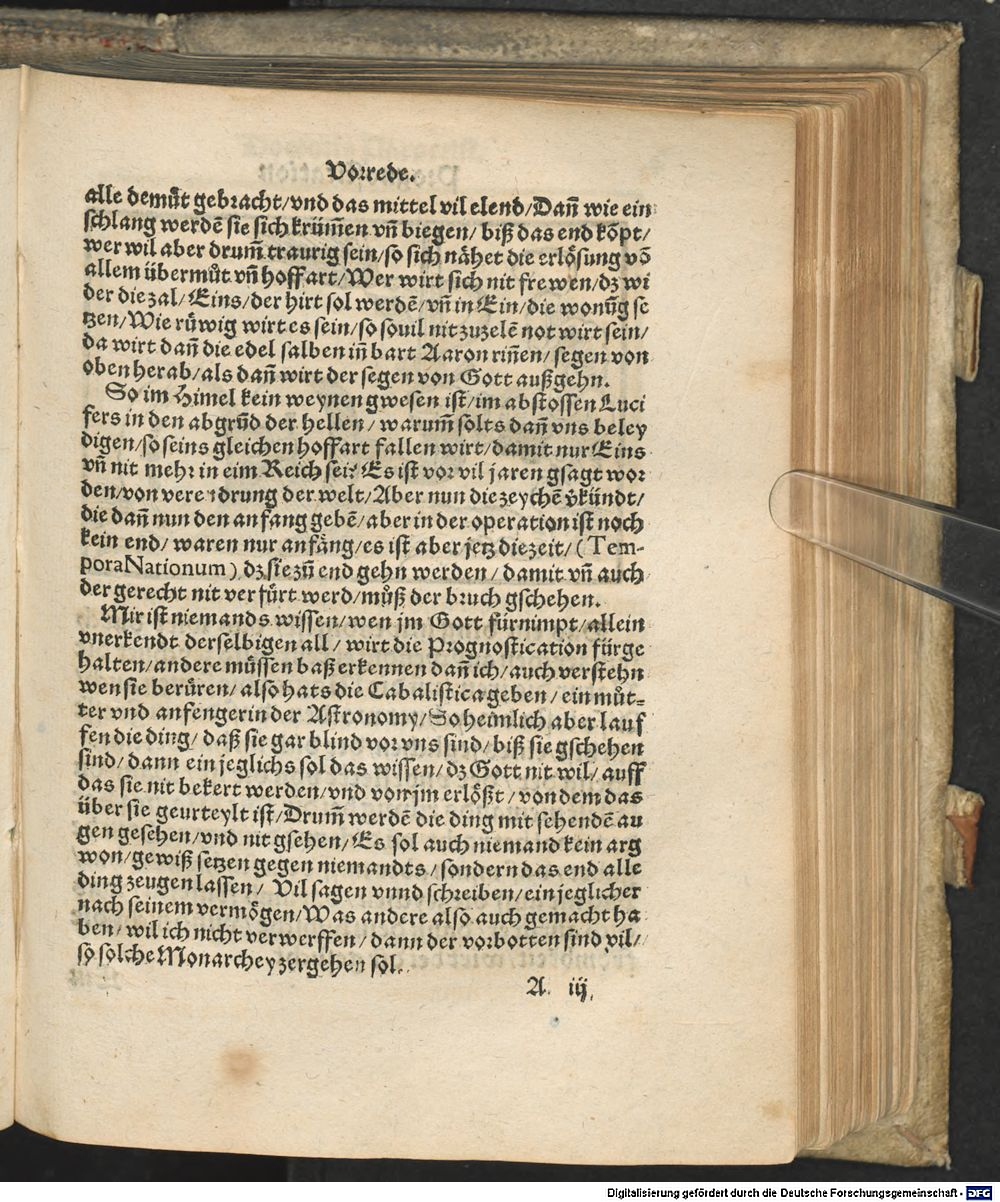 Vorrede.
alle demuͤt gebracht/vnd das mittel vil elend/Dañ wie ein
schlang werdē sie sich krüm̃en vñ biegen/ biß das end kōpt/
wer wil aber drum̃ traurig sein/so sich nähet die erlösung vō
allem übermuͤt vñ hoffart/Wer wirt sich nit frewen/dz wi
der die zal/Eins/der hirt sol werdē/vñ in Ein/die wonūg se
tzen/Wie ruͤwig wirt es sein/so souil nit zuzelē not wirt sein/
da wirt dañ die edel salben iñ bart Aaron riñen/segen von
oben herab/als dañ wirt der segen von Gott außgehn.
So im Himel kein weynen gwesen ist/im abstossen Luci
fers in den abgrūd der hellen/ warum̃ solts dañ vns beley
digen/so seins gleichen hoffart fallen wirt/damit nur Eins
vñ nit mehr in eim Reich sei? Es ist vor vil jaren gsagt wor
den/von verendrung der welt/Aber nun die zeychē v̄kündt/
die dañ nun den anfang gebē/aber in der operation ist noch
kein end/ waren nur anfäng/es ist aber jetz die zeit/(Tem-
pora Nationum) dz sie zū end gehn werden/damit vñ auch
der gerecht nit verfürt werd/muͦß der bruch gschehen.
Mir ist niemands wissen/wen jm Gott fürnimpt/allein
vnerkendt derselbigen all/ wirt die Prognostication fürge
halten/andere müssen baß erkennen dañ ich/auch verstehn
wen sie berüren/ also hats die Cabalistica geben/ ein muͦt-
ter vnd anfengerin der Astronomy/So heimlich aber lauf
fen die ding/ daß sie gar blind vor vns sind/biß sie gschehen
sind/dann ein jeglichs sol das wissen/dz Gott nit wil/auff
das sie nit bekert werden/vnd von jm erlößt/von dem das
über sie geurteylt ist/Drum̃ werdē die ding mit sehendē au
gen gesehen/vnd nit gsehen/Es sol auch niemand kein arg
won/gewiß setzen gegen niemandts/sondern das end alle
ding zeugen lassen/ Vil sagen vnnd schreiben/ein jeglicher
nach seinem vermögen/Was andere also auch gemacht ha
ben/wil ich nicht verwerffen/dann der vorbotten sind vil/
so solche Monarchey zergehen sol.
A iij
Digitalisierung gefördert durch die Deutsche Forschungsgemeinschaft - DFG